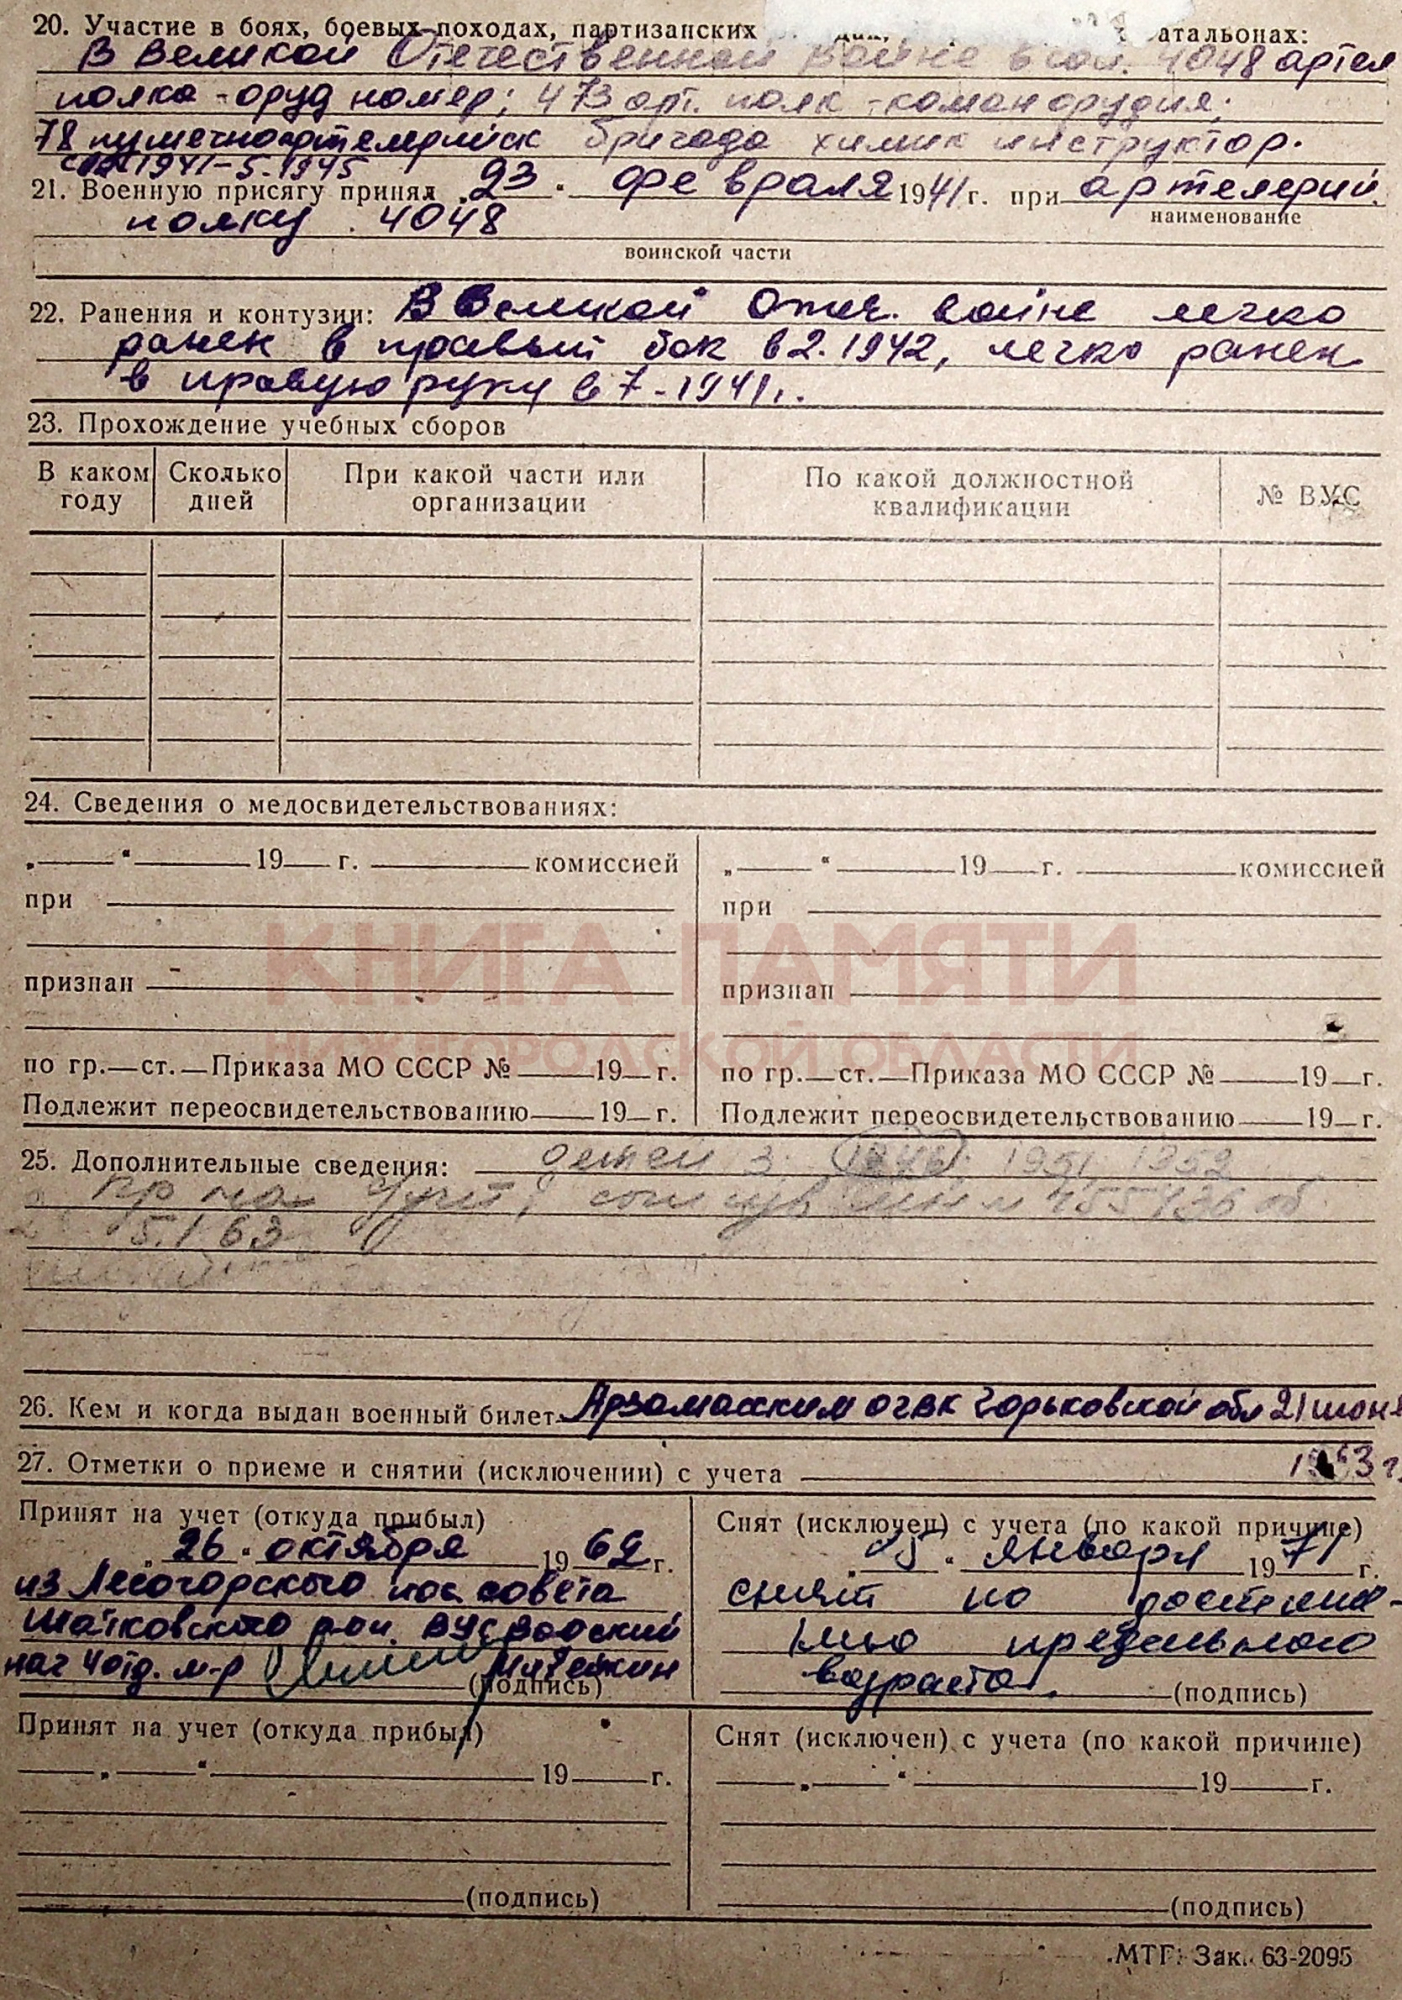 20. Участие в боях, боевых походах, партизанских атальонах:
В Великой Отечественной войне в сост. 4048 артел
полка - оруд номер; 473 арт. полк - коман орудия;
78 пумечноартелерийск бригада химик инструктор.
1941-5.1945
21. Военную присягу принял 23. февраля 1941 г. при артелерий.
наименование
полку 4048
воинской части
22. Ранения и контузии: В Великой Отеч. войне легко
ранен в правый бок в 2.1942, легко ранен
в правую руку в 7-1941г.
23. Прохождение учебных сборов
В каком году Сколько дней При какой части или организации По какой должностной квалификации № ВУС
24. Сведения о медосвидетельствованиях:
„ “ 19 г. комиссией „ “ 19 г. комиссией
при при
КНИГА ПАМЯТИ
признан признан
НИЖЕГОРОДСКОЙ ОБЛАСТИ
по гр. — ст. — Приказа МО СССР № 19 г. по гр. — ст. — Приказа МО СССР № 19 г.
Подлежит переосвидетельствованию 19 г. Подлежит переосвидетельствованию 19 г.
25. Дополнительные сведения: детей 3. 1946, 1951, 1952
5.1 63
26. Кем и когда выдан военный билет Арзамасским ОГВК Горьковской обл 21 июня
1963 г.
27. Отметки о приеме и снятии (исключении) с учета
Принят на учет (откуда прибыл) Снят (исключен) с учета (по какой причине)
26. октября 1962 г. 5. января 1971 г.
из Лесогорского пос. совета снят по достиже-
Шатковского р-он. нию предельного
нач 4 отд. м-р возраста.
(подпись) (подпись)
Принят на учет (откуда прибыл) Снят (исключен) с учета (по какой причине)
„ “ 19 г. „ “ 19 г.
(подпись) (подпись)
МТГ. Зак. 63-2095